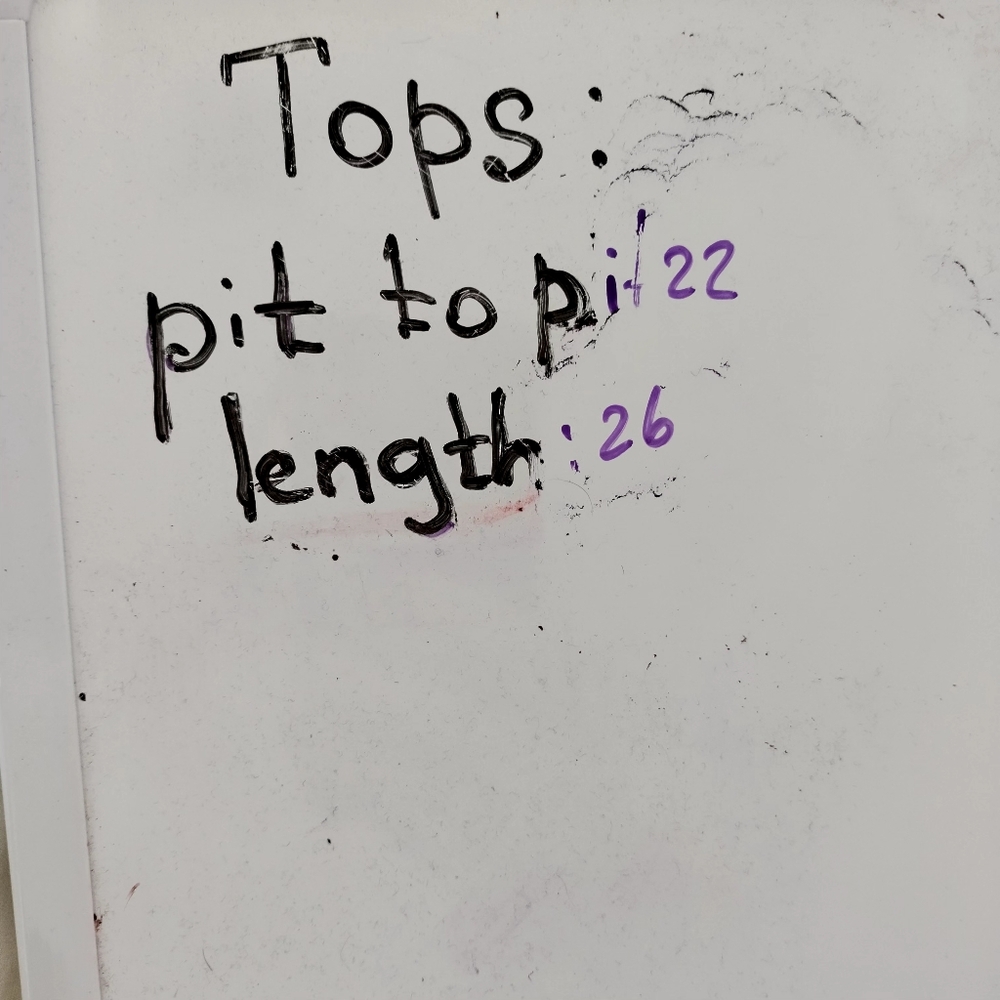 Tops :
pit to pit 22
length : 26